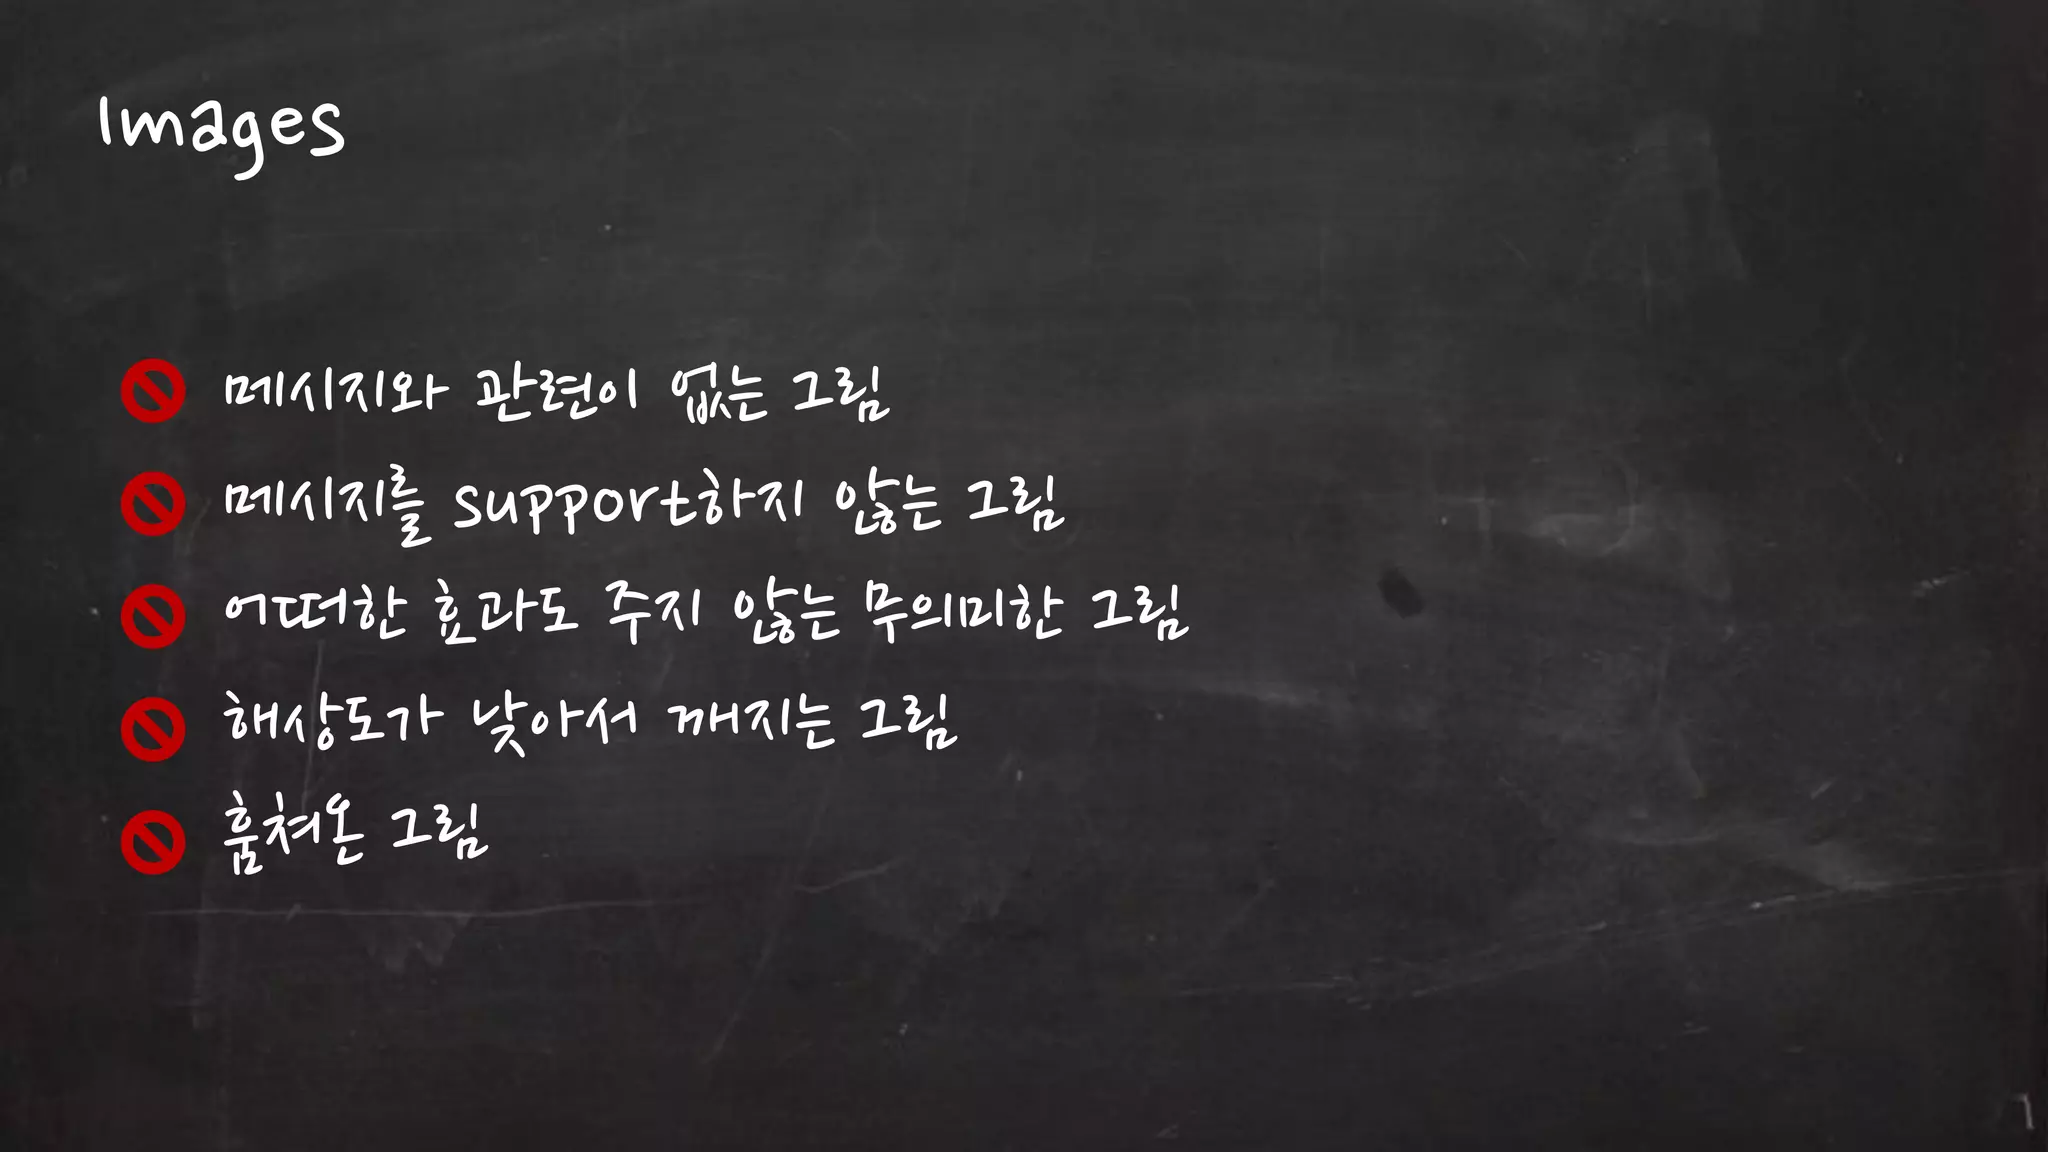 Images
메시지와 관련이 없는 그림
메시지를 support하지 않는 그림
어떠한 효과도 주지 않는 무의미한 그림
해상도가 낮아서 깨지는 그림
훔쳐온 그림